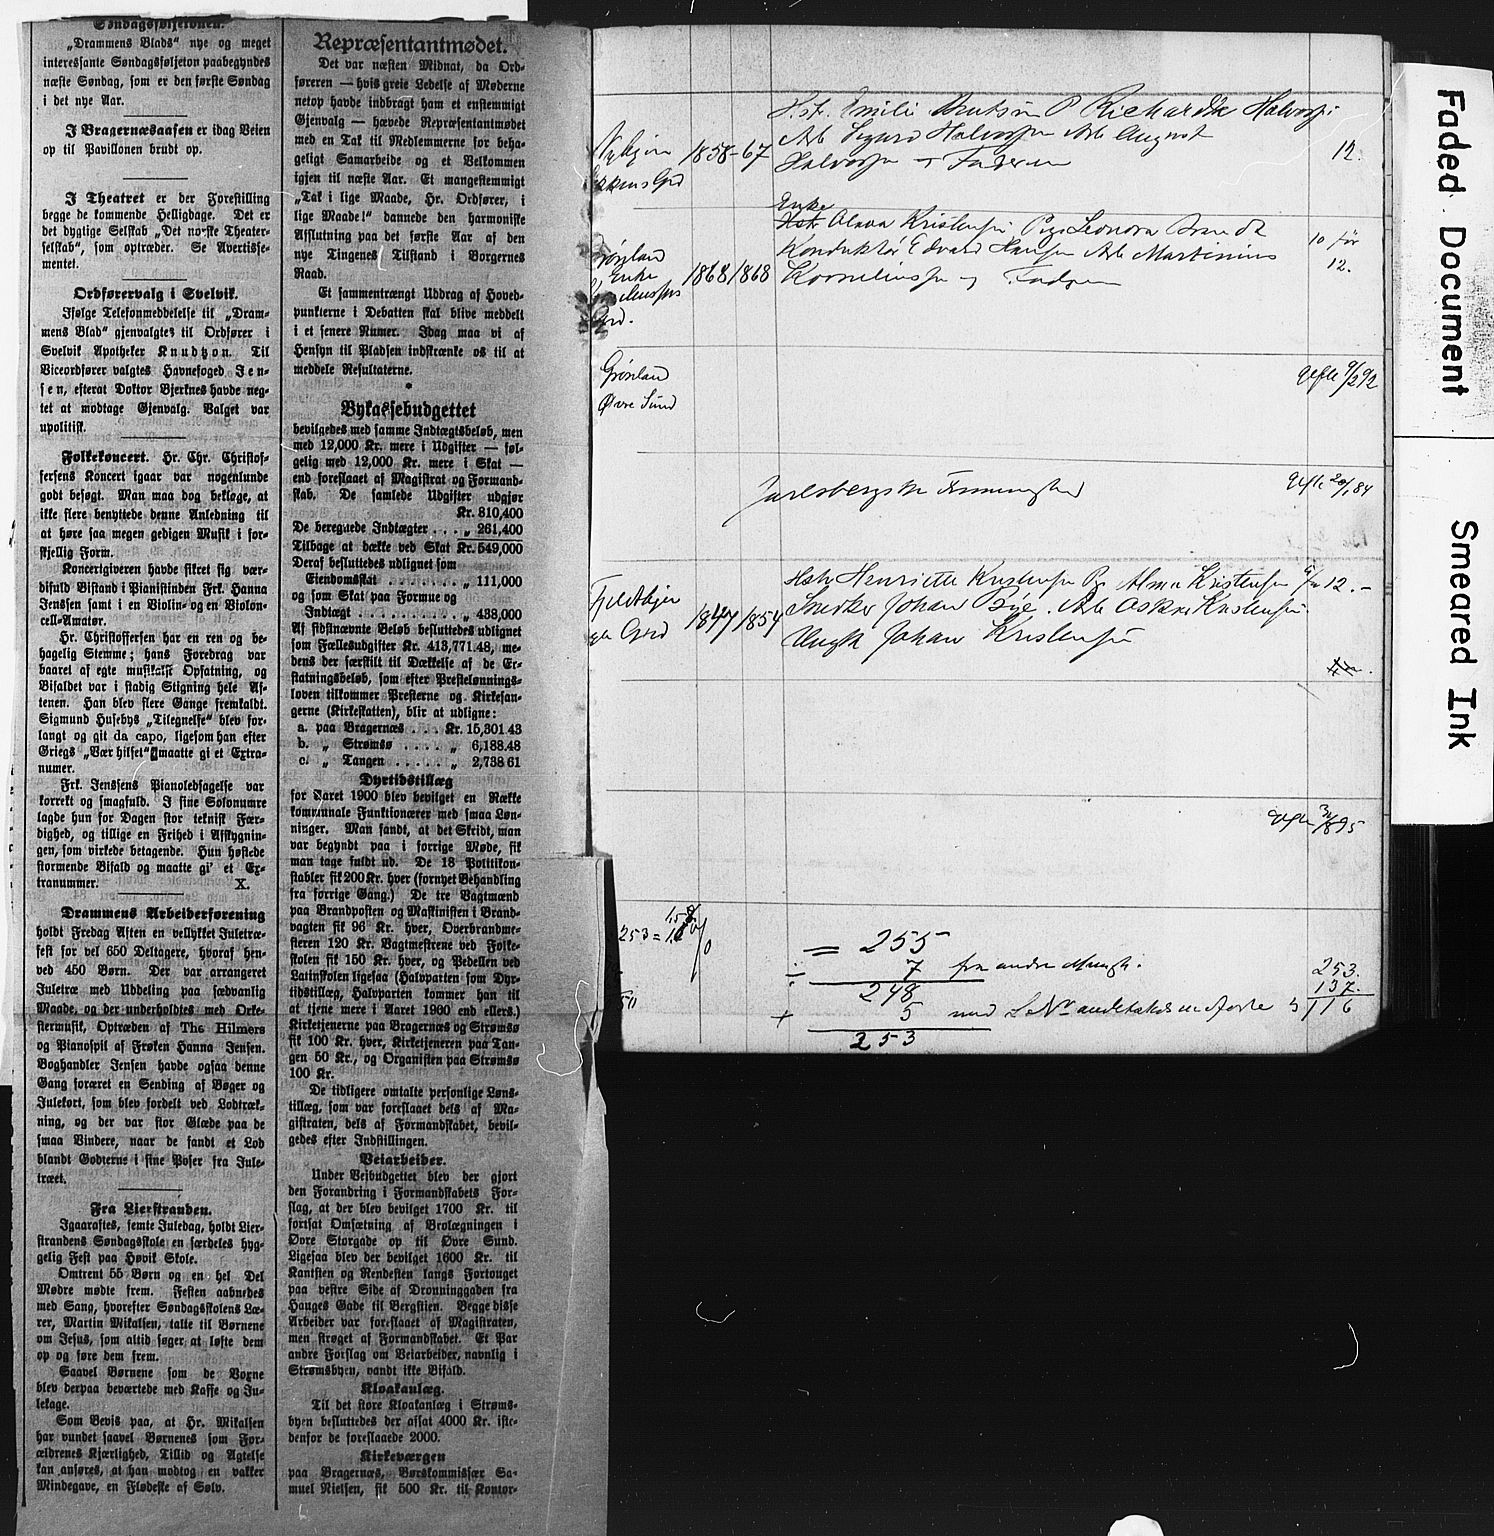 Søndagsføljetonen.
„Drammens Blads“ nye og meget
interessante Søndagsføljeton paabegyndes
næste Søndag, som er den første Søndag
i det nye Aar.
I Bragernæsaasen er idag Veien
op til Pavillonen brudt op.
I Theatret er der Forestilling
begge de kommende Helligdage. Det er
det dygtige Selskab „Det norske Theater-
selskab“, som optræder. Se Avertisse-
mentet.
Ordførervalg i Svelvik.
Ifølge Telefonmeddelelse til „Dram-
mens Blad“ gjenvalgtes til Ordfører i
Svelvik Apotheker Knudtzon. Til
Viceordfører valgtes Havnefoged Jen-
sen, efterat Doktor Bjerknes havde neg-
tet at modtage Gjenvalg. Valget var
upolitisk.
Folkekoncert. Hr. Chr. Christof-
fersens Koncert igaar var nogenlunde
godt besøgt. Man maa dog beklage, at
ikke flere benyttede denne Anledning til
at høre saa megen gedigen Musik i for-
skjellig Form.
Koncertgiveren havde sikret sig vær-
difuld Bistand i Pianistinden Frk. Hanna
Jenssen samt i en Violin- og en Violon-
cell-Amatør.
Hr. Christoffersen har en ren og be-
hagelig Stemme; hans Foredrag var
baaret af egte musikalsk Opfatning, og
Bifaldet var i stadig Stigning hele Af-
tenen. Han blev flere Gange fremkaldt.
Sigmund Husebys „Tilegnelse“ blev for-
langt og git da capo, ligesom han efter
Griegs „Vær hilset“ maatte gi et Extra-
numer.
Frk. Jenssens Pianoledsagelse var
korrekt og smagfuld. I sine Solonumre
lagde hun for Dagen stor teknisk Fær-
dighed, og tillige en Frihed i Afskygnin-
gen, som virkede betagende. Hun høstede
stormende Bifald og maatte gi et Ex-
tranummer. X.
Drammens Arbeiderforening
holdt Fredag Aften en vellykket Juletræ-
fest for vel 650 Deltagere, hvoraf hen-
ved 450 Børn. Der var arrangeret
Juletræ med Uddeling paa sædvanlig
Maade, og der underholdtes med Orke-
stermusik, Optræden af The Hilmers
og Pianospil af Frøken Hanna Jensen.
Boghandler Jensen havde ogsaa denne
Gang foræret en Sending af Bøger og
Julekort, som blev fordelt ved Lodtræk-
ning, og der var stor Glæde paa de
smaa Vindere, naar de fandt et Lod
blandt Godterne i sine Poser fra Jule-
træet.
Fra Lierstranden.
Igaaraftes, femte Juledag, holdt Lier-
strandens Søndagsskole en særdeles hyg-
gelig Fest paa Høvik Skole.
Omtrent 55 Børn og en hel Del
Mødre mødte frem. Festen aabnedes
med Sang, hvorefter Søndagsskolens Læ-
rer, Martin Mikalsen, talte til Børnene
om Jesus, som altid søger at løfte dem
op og føre dem frem.
Saavel Børnene som de Voxne
blev derpaa beværtede med Kaffe og Ju-
lekage.
Som Bevis paa, at Hr. Mikalsen
har vundet saavel Børnenes som For-
ældrenes Kjærlighed, Tillid og Agtelse
kan anføres, at han modtog en vakker
Mindegave, en Flødeske af Sølv.
Repræsentantmødet.
Det var næsten Midnat, da Ord-
føreren — hvis greie Ledelse af Møderne
netop havde indbragt ham et enstemmigt
Gjenvalg — hævede Repræsentantmødet
med en Tak til Medlemmerne for beha-
geligt Samarbeide og et Velkommen
igjen til næste Aar. Et mangestemmigt
„Tak i lige Maade, Hr. Ordfører, i
lige Maade!“ dannede den harmoniske
Afslutning paa det første Aar af den
nye Tingenes Tilstand i Borgernes
Raad.
Et sammentrængt Uddrag af Hoved-
punkterne i Debatten skal blive meddelt
i et senere Numer. Idag maa vi af
Hensyn til Pladsen indskrænke os til at
meddele Resultaterne.
Bykassebudgettet
bevilgedes med samme Indtægtsbeløb, men
med 12,000 Kr. mere i Udgifter — føl-
gelig med 12,000 Kr. mere i Skat —
end foreslaaet af Magistrat og Formand-
skab. De samlede Udgifter udgjør
Kr. 810,400
De beregnede Indtægter . . . „ 261,400
Tilbage at dække ved Skat Kr. 549,000
Deraf besluttedes udlignet som
Eiendomsskat . . . . . . . . „ 111,000
og som Skat paa Formue og
Indtægt . . . . . . . . . . „ 438,000
Af sidstnævnte Beløb besluttedes udlignet
som Fællesudgifter Kr. 413,771.48, me-
dens der særskilt til Dækkelse af de Er-
statningsbeløb, som efter Prestelønnings-
loven tilkommer Presterne og Kirkesan-
gerne (Kirkeskatten), blir at udligne:
a. paa Bragernæs . . . Kr. 15,301 43
b. „ Strømsø . . . . . „ 6,188.48
c. „ Tangen . . . . . . „ 2,738 61
Dyrtidstillæg
for Aaret 1900 blev bevilget en Række
kommunale Funktionærer med smaa Løn-
ninger. Man fandt, at det Skridt, man
var begyndt paa i forrige Møde, fik
man tage fuldt ud. De 18 Politikon-
stabler fik 200 Kr. hver (fornyet Behandling
fra forrige Gang.) De tre Vagtmænd
paa Brandposten og Maskinisten i Brand-
vagten fik 96 Kr. hver, Overbrandme-
steren 120 Kr. Vagtmestrene ved Folke-
skolen fik 150 Kr. hver, og Pedellen ved
Latinskolen ligesaa (Halvparten som Dyr-
tidstillæg, Halvparten kommer han til
at tjene mere i Aaret 1900 end ellers.)
Kirketjenerne paa Bragernæs og Strømsø
fik 100 Kr. hver, Kirketjeneren paa Tan-
gen 50 Kr., og Organisten paa Strømsø
100 Kr.
De tidligere omtalte personlige Løns-
tillæg, som var foreslaaet dels af Ma-
gistraten, dels af Formandskabet, bevil-
gedes efter Indstillingen.
Veiarbeider.
Under Veibudgettet blev der gjort
den Forandring i Formandskabets For-
slag, at der blev bevilget 1700 Kr. til
fortsat Omsætning af Brolægningen i
Øvre Storgade op til Øvre Sund.
Ligesaa blev der bevilget 1600 Kr. til
Kantsten og Rendesten langs Fortouget
paa vestre Side af Dronninggaden fra
Hauges Gade til Bergstien. Begge disse
Arbeider var foreslaaet af Magistraten,
men strøget af Formandskabet. Et Par
andre Forslag om Veiarbeider, navnlig i
Strømsbyen, vandt ikke Bifald.
Kloakanlæg.
Til det store Kloakanlæg i Strøms-
byen besluttedes der afsat 4000 Kr. iste-
denfor de foreslaaede 2000.
Kirkeværgen
paa Bragernæs, Børskommissær Sa-
muel Nielsen, fik 500 Kr. til Kontor-
Hst. Emilie P. Richardia Halvorsen
Arb Sigurd Halvorsen Arb August
1858-67 Halvorsen 12.
Enke
Olava Kristensen Pige Leonora Brandt 10 før
Grønland Konduktør Edvard Hansen Arb Martinius 12.
Enke 1868 1868 Korneliussen og
Grønland
Øvre Sund gifte 9/2 92
Jarlsbergske gifte 20/1 84
Hst. Henriette Kristensen Pg Alma Kristensen 12. -
Snedker Johan Bye. Arb Oskar Kristensen
Grd 1847 1854 Johan Kristensen
gifte 895
253 =
= 255
÷ 7 fra andre 253.
248 137.
+ 5 med 116
253
Faded Document
Smeared Ink